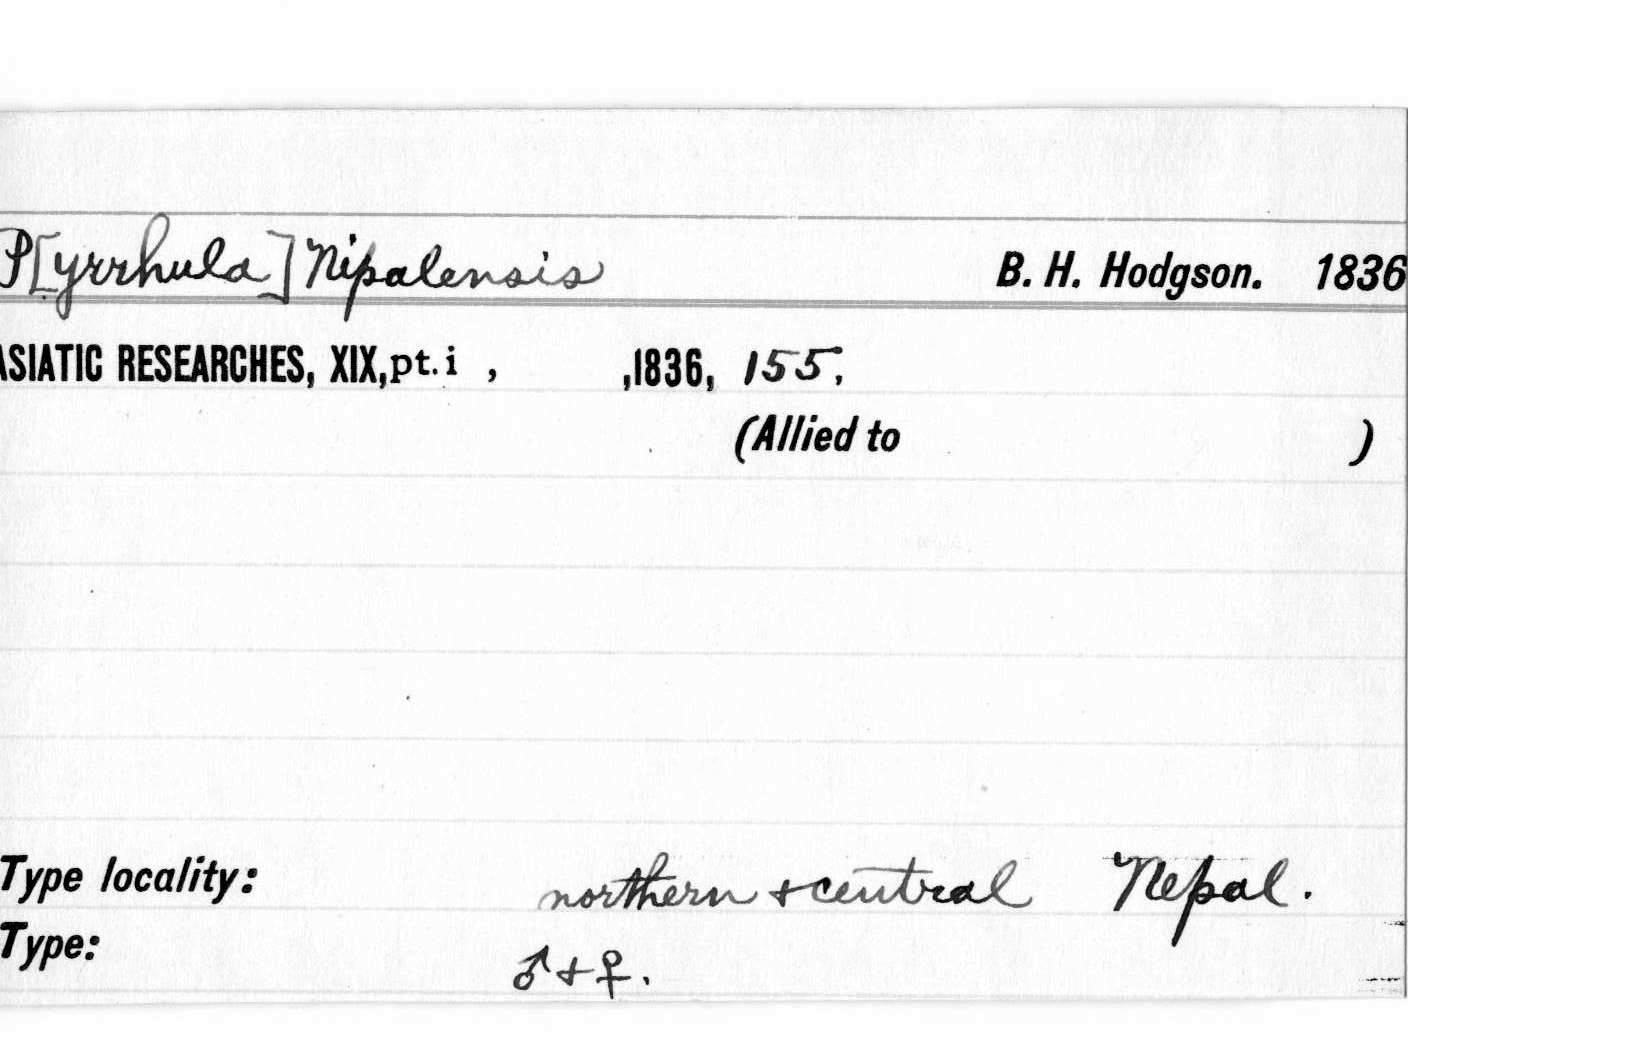 P[yrrhula] Nipalensis B. H. Hodgson. 1836
ASIATIC RESEARCHES, XIX, pt. i , ,1836, 155.
(Allied to )
Type locality: northern & central Nepal.
Type: ♂ & ♀.